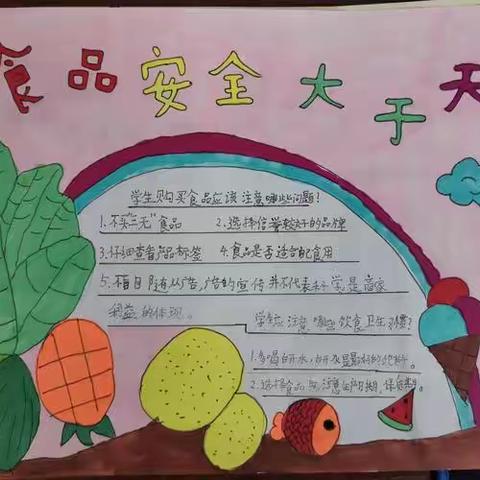 食品安全大于天
学生购买食品应该注意哪些问题?
1.不买"三无"食品 2.选择信誉较好的品牌
3.仔细查看产品标签 4.食品是否适合自己食用
5.不盲目随从广告,广告的宣传并不代表科学,是商家
利益的体现。
学生应注意哪些饮食卫生习惯?
1.多喝白开水,白开水是最好的饮料。
2.选择食品与注意生产日期,保质期。